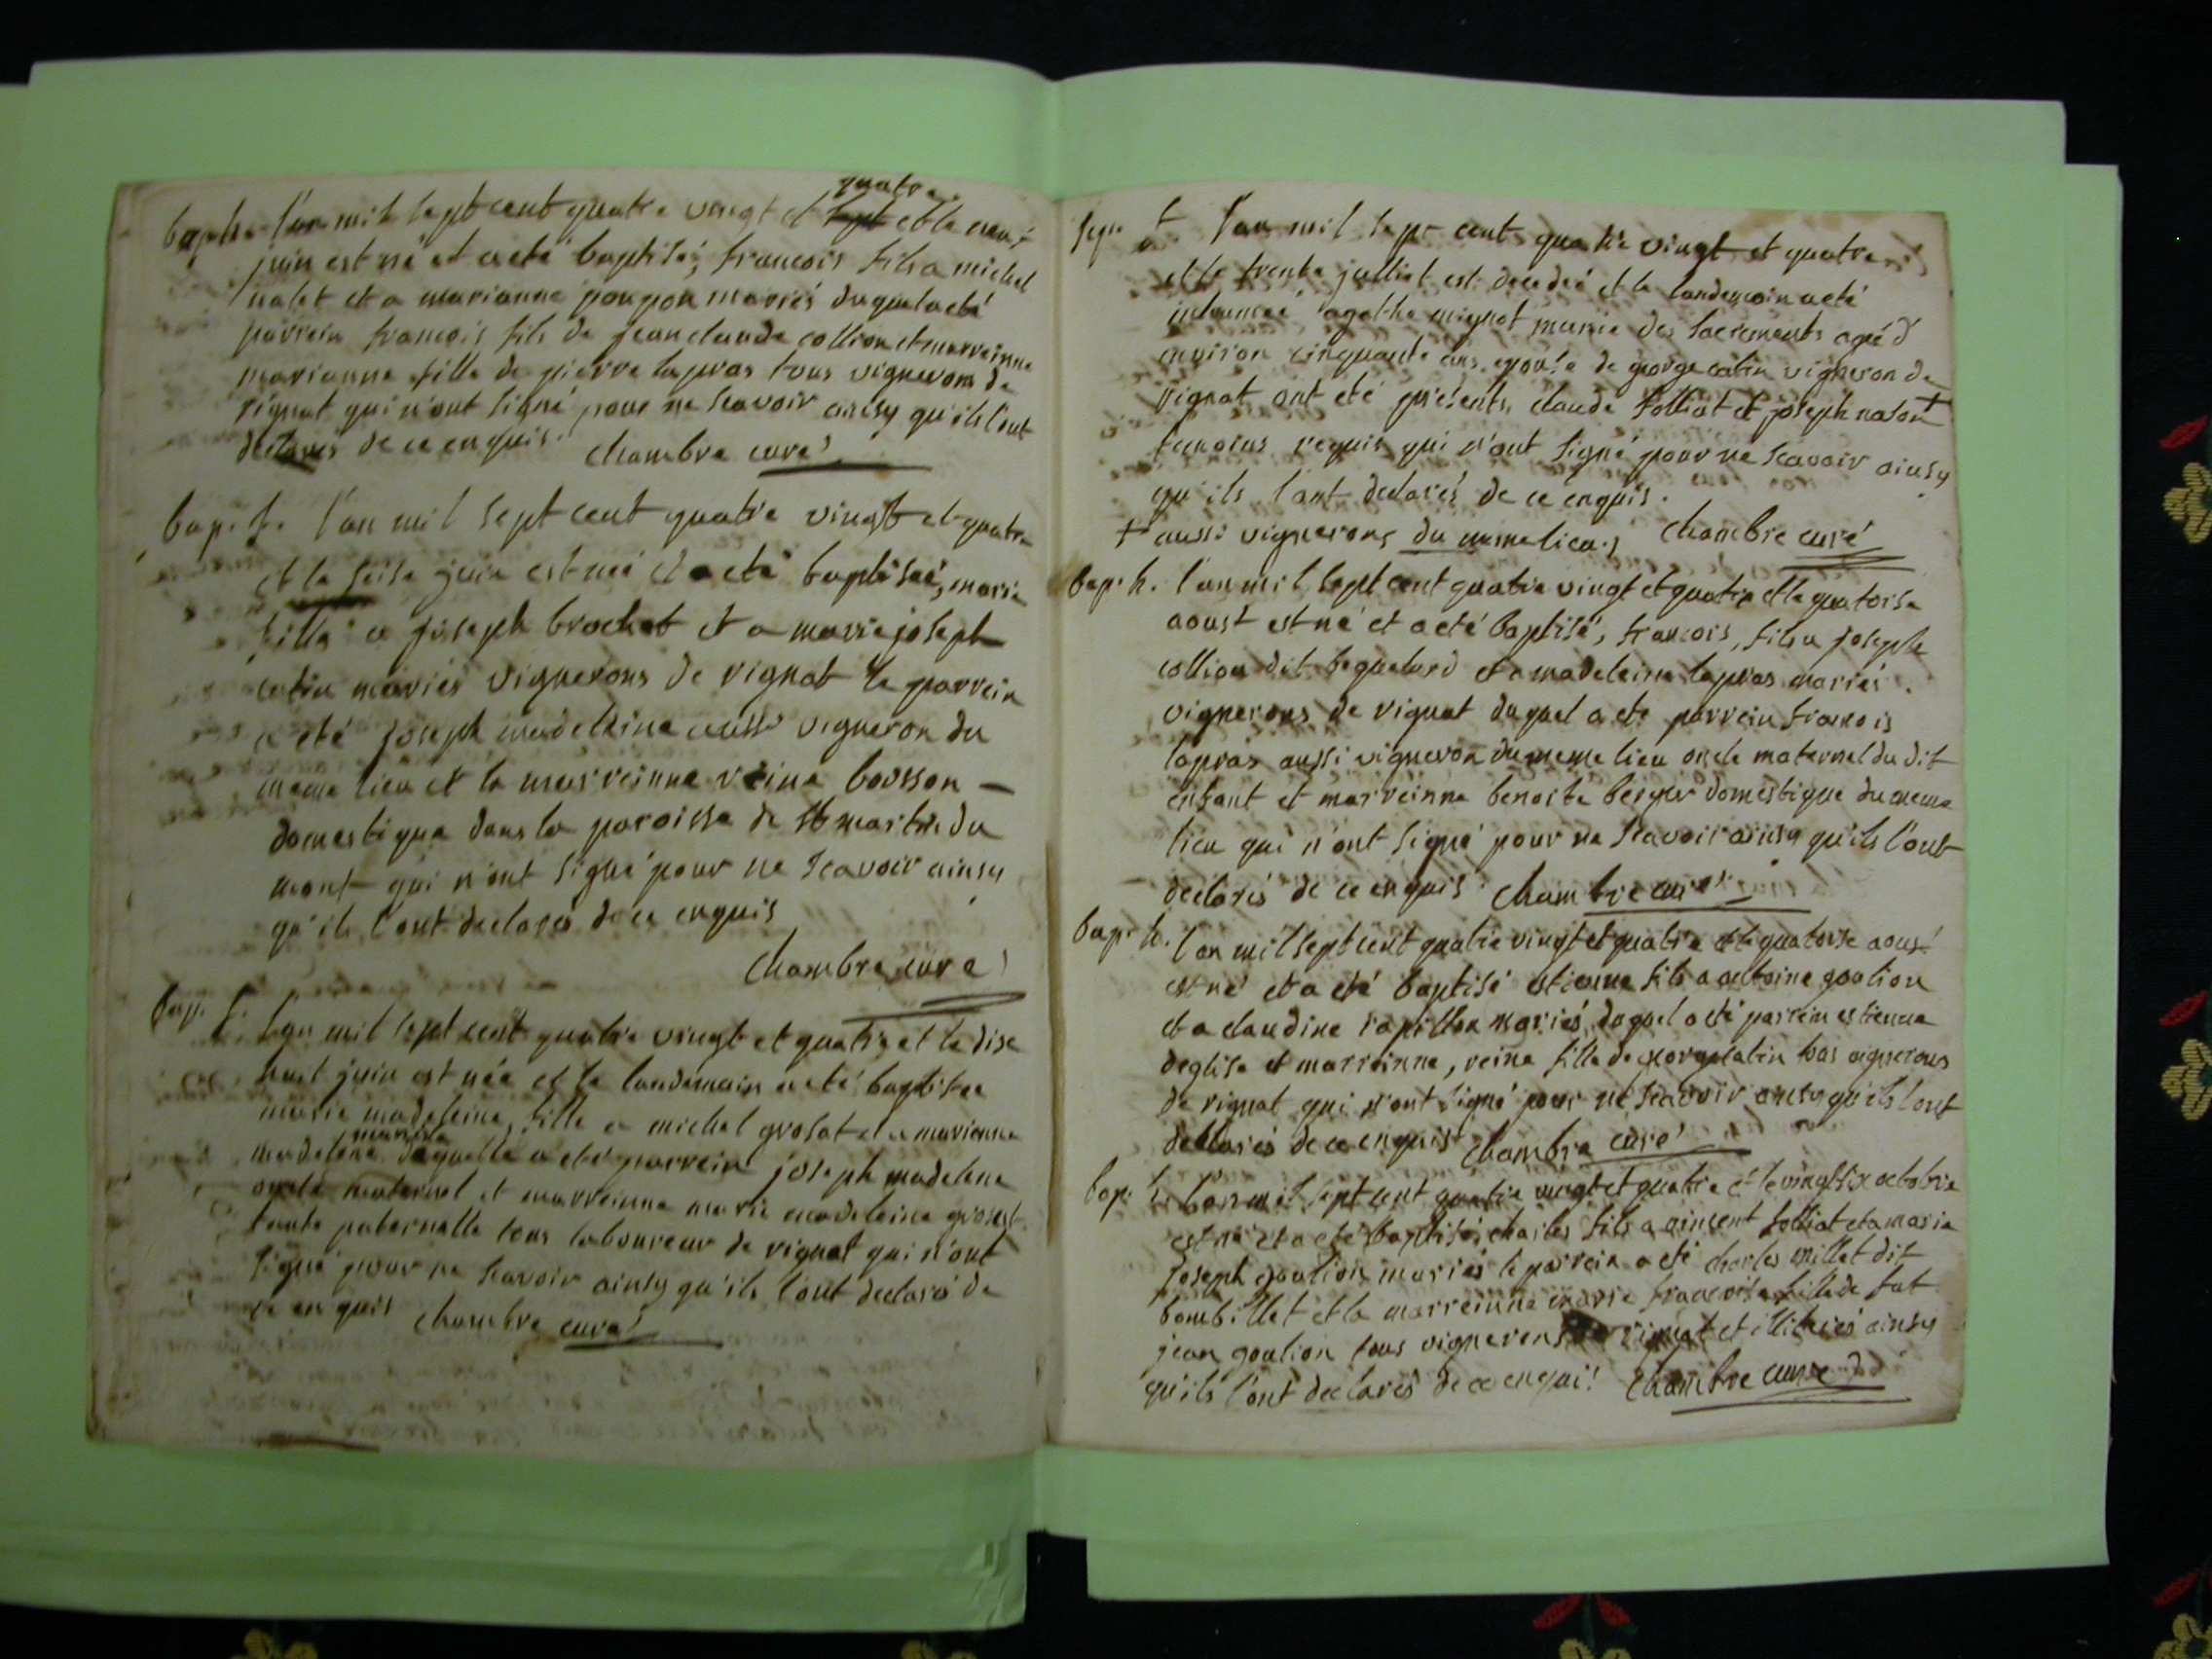 quatre
bap. h. l'an mil sept cent quatre vingt et sept et le neuf
juin est né et a eté baptisé, francois fils a michel
nalet et a marianne poupon mariés duquel a eté
parrein francois fils de jean claude collion et marreinne
marianne fille de pierre lapras tous vignerons de
rignat qui n'ont signé pour ne scavoir ainsy qu'ils l'ont
declarés de ce enquis. chambre curé
bap. f. l'an mil sept cent quatre vingt et quatre
et le seise juin est née et a eté baptiseé, marie
fille a joseph brochet et a marie joseph
catin mariés vignerons de rignat le parrein
a eté joseph madeleine aussi vigneron du
meme lieu et la marreinne reine bosson
domestique dans la paroisse de st martin du
mont qui n'ont signé pour ne scavoir ainsy
qu'ils l'ont declaré de ce enquis
chambre curé
bap. f. l'an mil sept cent quatre vingt et quatre et le dise
huit juin est née et le landemain a eté baptisée
marie madeleine, fille a michel grosat et a marianne
mariés
madelene daquelle a eté parrein joseph madelene
oncle maternel et marreinne marie madeleine grosat
tante paternelle tous laboureur de rignat qui n'ont
signé pour ne scavoir ainsy qu'ils l'ont declaré de
ce enquis chambre curé
sep. f. l'an mil sept cent quatre vingt et quatre
et le trente julliet est decedeé et le landemain a eté
inhumeé agathe mignot munie des sacrements ageé d
environ cinquante ans epouse de george catin vigneron de
rignat ont eté présents claude folliat et joseph nason +
temoins requis qui n'ont signé pour ne scavoir ainsy
qu'ils l'ont declarés de ce enquis.
+ aussi vignerons du meme lieu. chambre curé
bap. h. l'an mil sept cent quatre vingt et quatre et le quatorse
aoust est né et a eté baptisé, francois, fils a joseph
collion dit beguelard et a madeleine lapras mariés
vignerons de rignat duquel a eté parrein francois
lapras aussi vigneron du meme lieu oncle maternel du dit
enfant et marreinne benoite berger domestique du meme
lieu qui n'ont signé pour ne scavoir ainsy qu'ils l'ont
declarés de ce enquis chambre curé
bap. h. l'an mil sept cent quatre vingt et quatre et le quatorse aoust
est né et a eté baptisé estienne fils a antoine goulion
et a claudine rapillon mariés, duquel a eté parrein estienne
deglise et marreinne, reine fille de george catin tous vignerons
de rignat qui n'ont signé pour ne scavoir ainsy qu'ils l'ont
declarés de ce enquis chambre curé
bap. h. l'an mil sept cent quatre vingt et quatre et le vingt six octobre
est né et a eté baptisé, charles fils a vincent folliat et a marie
joseph goulion mariés le parrein a eté charles millet dit
bombillet et la marreinne marie francoise fille de fut
jean goulion tous vignerons rignat et illiterés ainsy
qu'ils l'ont declarés de ce enqui! chambre curé